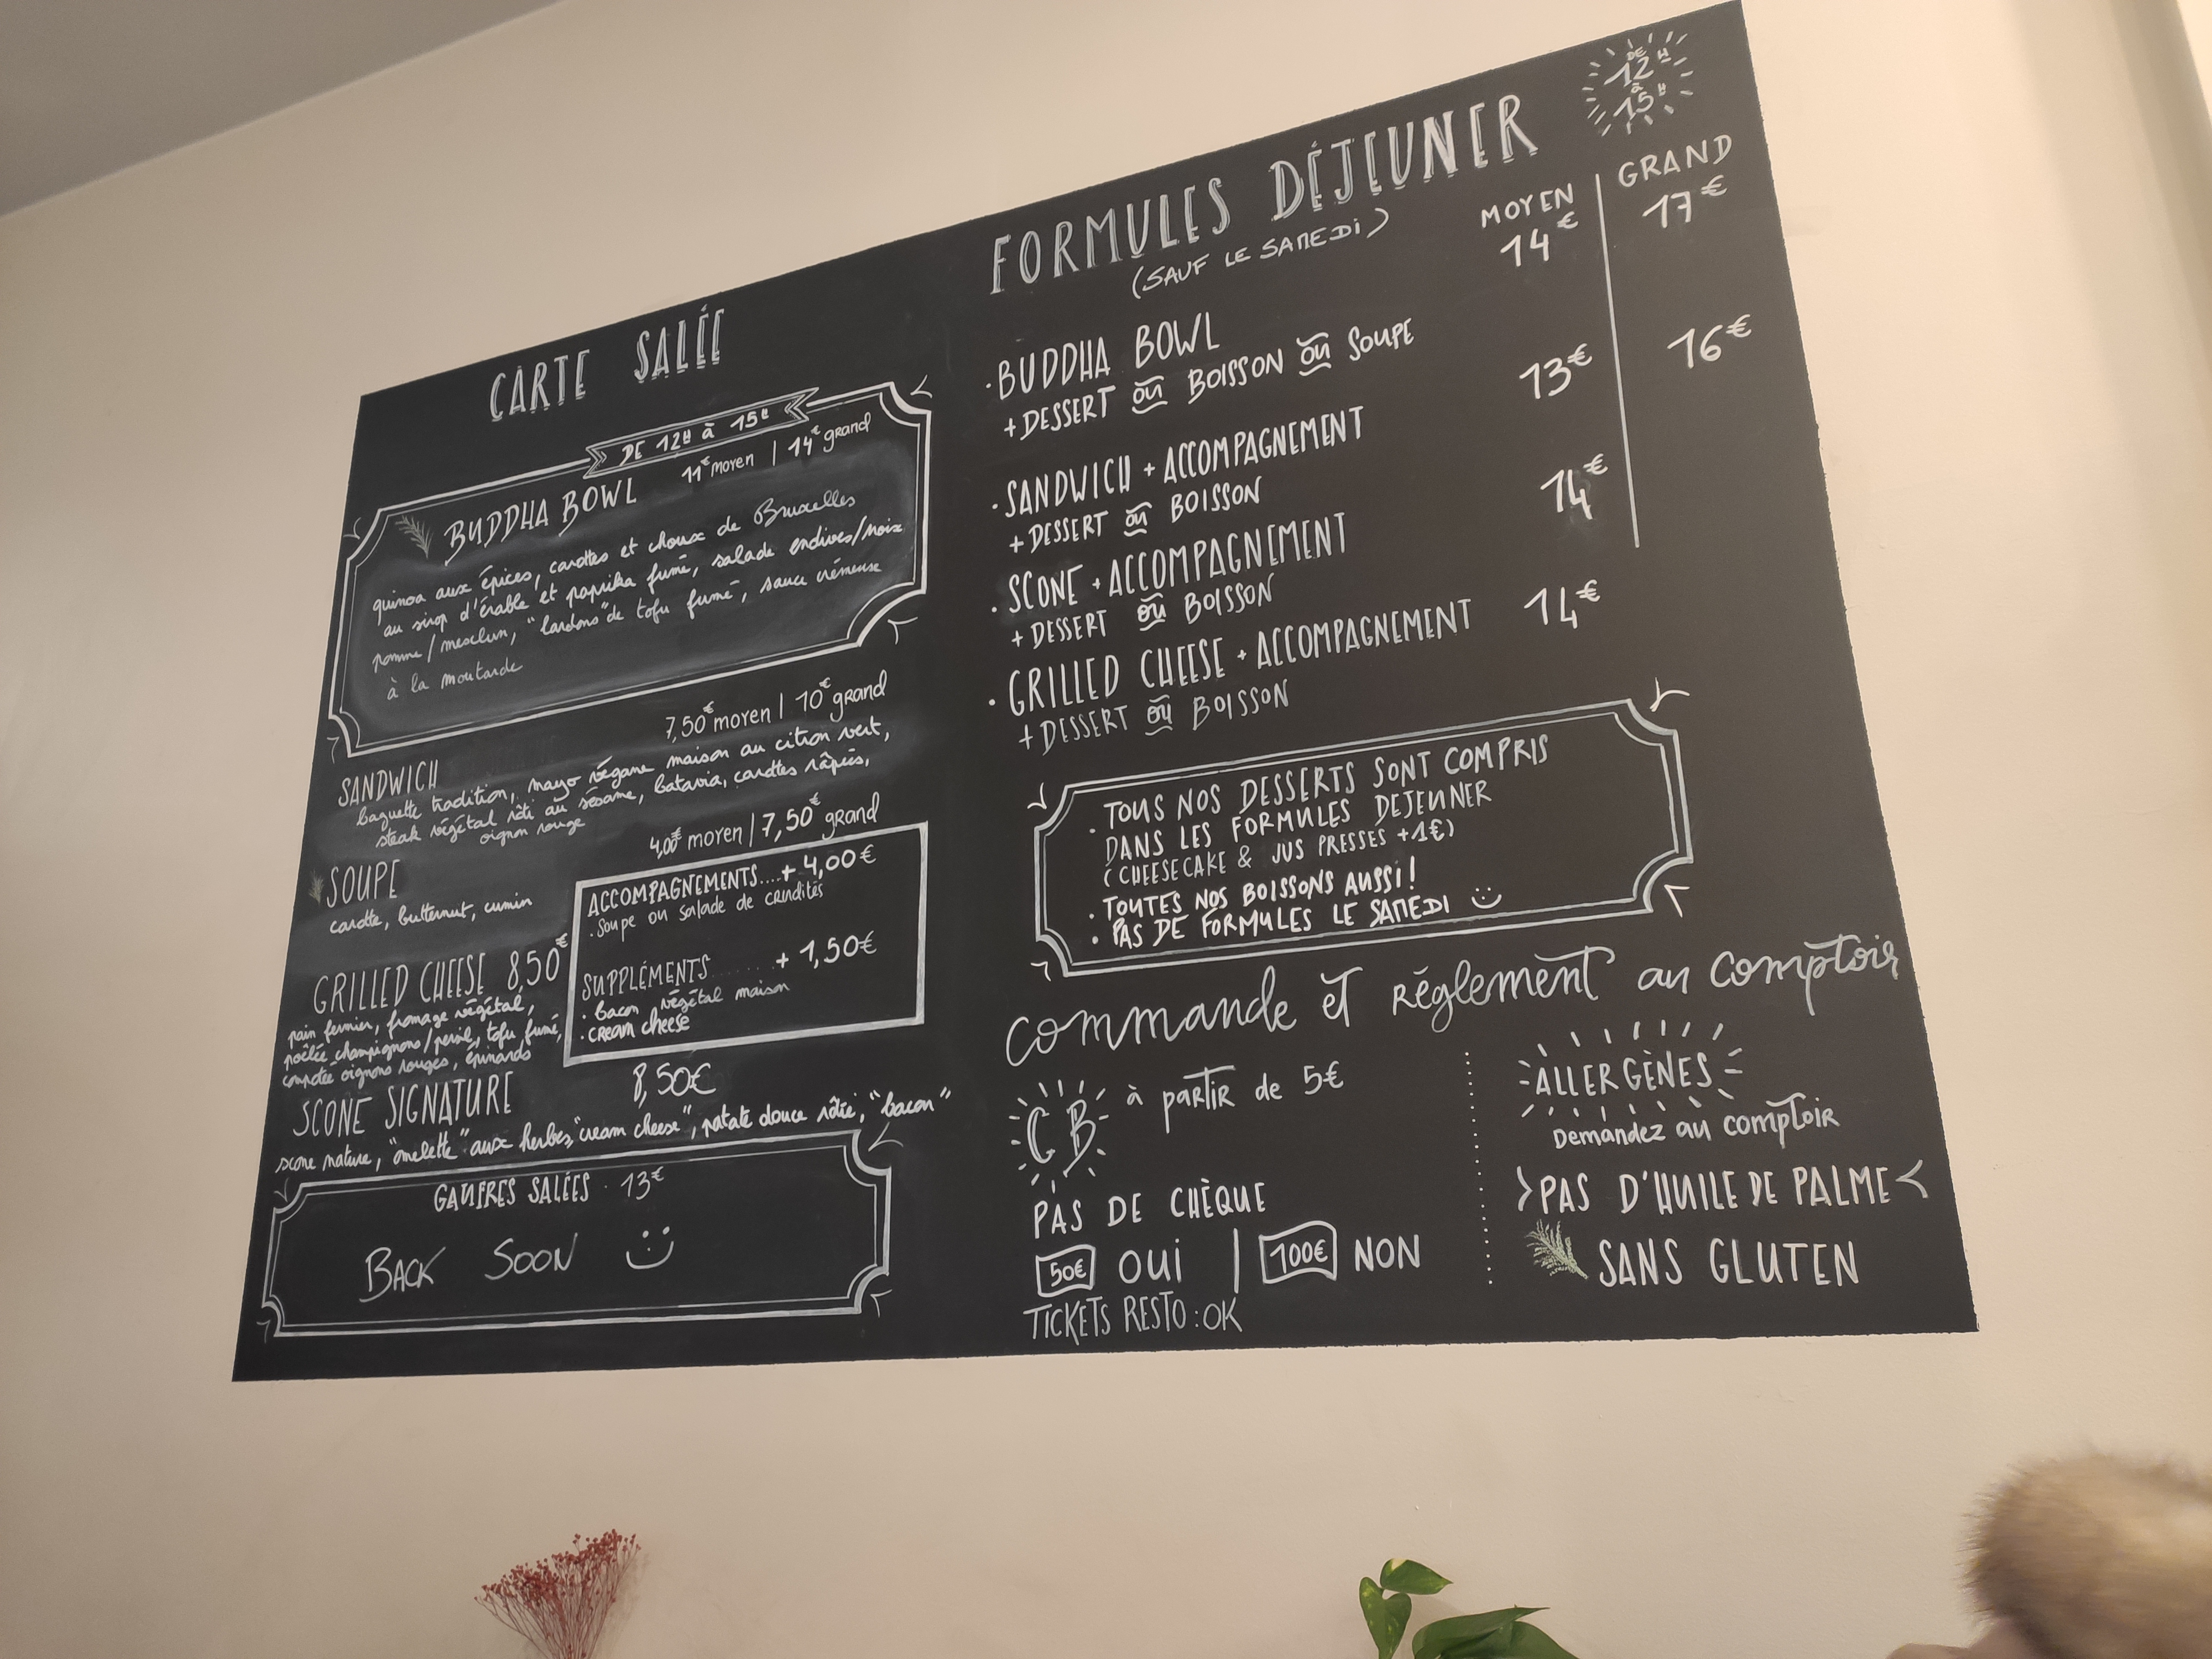 CARTE SALÉE
DE 12H à 15H
BUDDHA BOWL 11€ moyen | 14€ grand
quinoa aux épices, carottes et choux de Bruxelles
au sirop d'érable et paprika fumé, salade endives/noix
pomme/mesclun, "lardons" de tofu fumé, sauce crémeuse
à la moutarde
SANDWICH 7,50€ moyen | 10€ grand
baguette tradition, mayo végane maison au citron vert,
steak végétal rôti au sésame, batavia, carottes râpées,
oignon rouge
SOUPE 4,00€ moyen | 7,50€ grand
carotte, butternut, cumin
ACCOMPAGNEMENTS....+ 4,00€
. soupe ou salade de crudités
SUPPLÉMENTS....... + 1,50€
. bacon végétal maison
. cream cheese
GRILLED CHEESE 8,50€
pain fermier, fromage végétal,
poêlée champignons/persil, tofu fumé,
compotée oignons rouges, épinards
SCONE SIGNATURE 8,50€
scone nature, "omelette" aux herbes, "cream cheese", patate douce rôtie, "bacon"
GAUFRES SALÉES . 13€
BACK SOON
FORMULES DÉJEUNER
DE 12H à 15H
(SAUF LE SAMEDI)
MOYEN | GRAND
14€ | 17€
. BUDDHA BOWL
+ DESSERT ou BOISSON ou SOUPE
13€ | 16€
. SANDWICH + ACCOMPAGNEMENT
+ DESSERT ou BOISSON
14€
. SCONE + ACCOMPAGNEMENT
+ DESSERT ou BOISSON
14€
. GRILLED CHEESE + ACCOMPAGNEMENT
+ DESSERT ou BOISSON
. TOUS NOS DESSERTS SONT COMPRIS
DANS LES FORMULES DEJEUNER
(CHEESECAKE & JUS PRESSES +1€)
. TOUTES NOS BOISSONS AUSSI!
. PAS DE FORMULES LE SAMEDI
commande et règlement au comptoir
CB à partir de 5€
PAS DE CHÈQUE
50€ OUI | 100€ NON
TICKETS RESTO : OK
ALLERGÈNES
Demandez au comptoir
PAS D'HUILE DE PALME
SANS GLUTEN